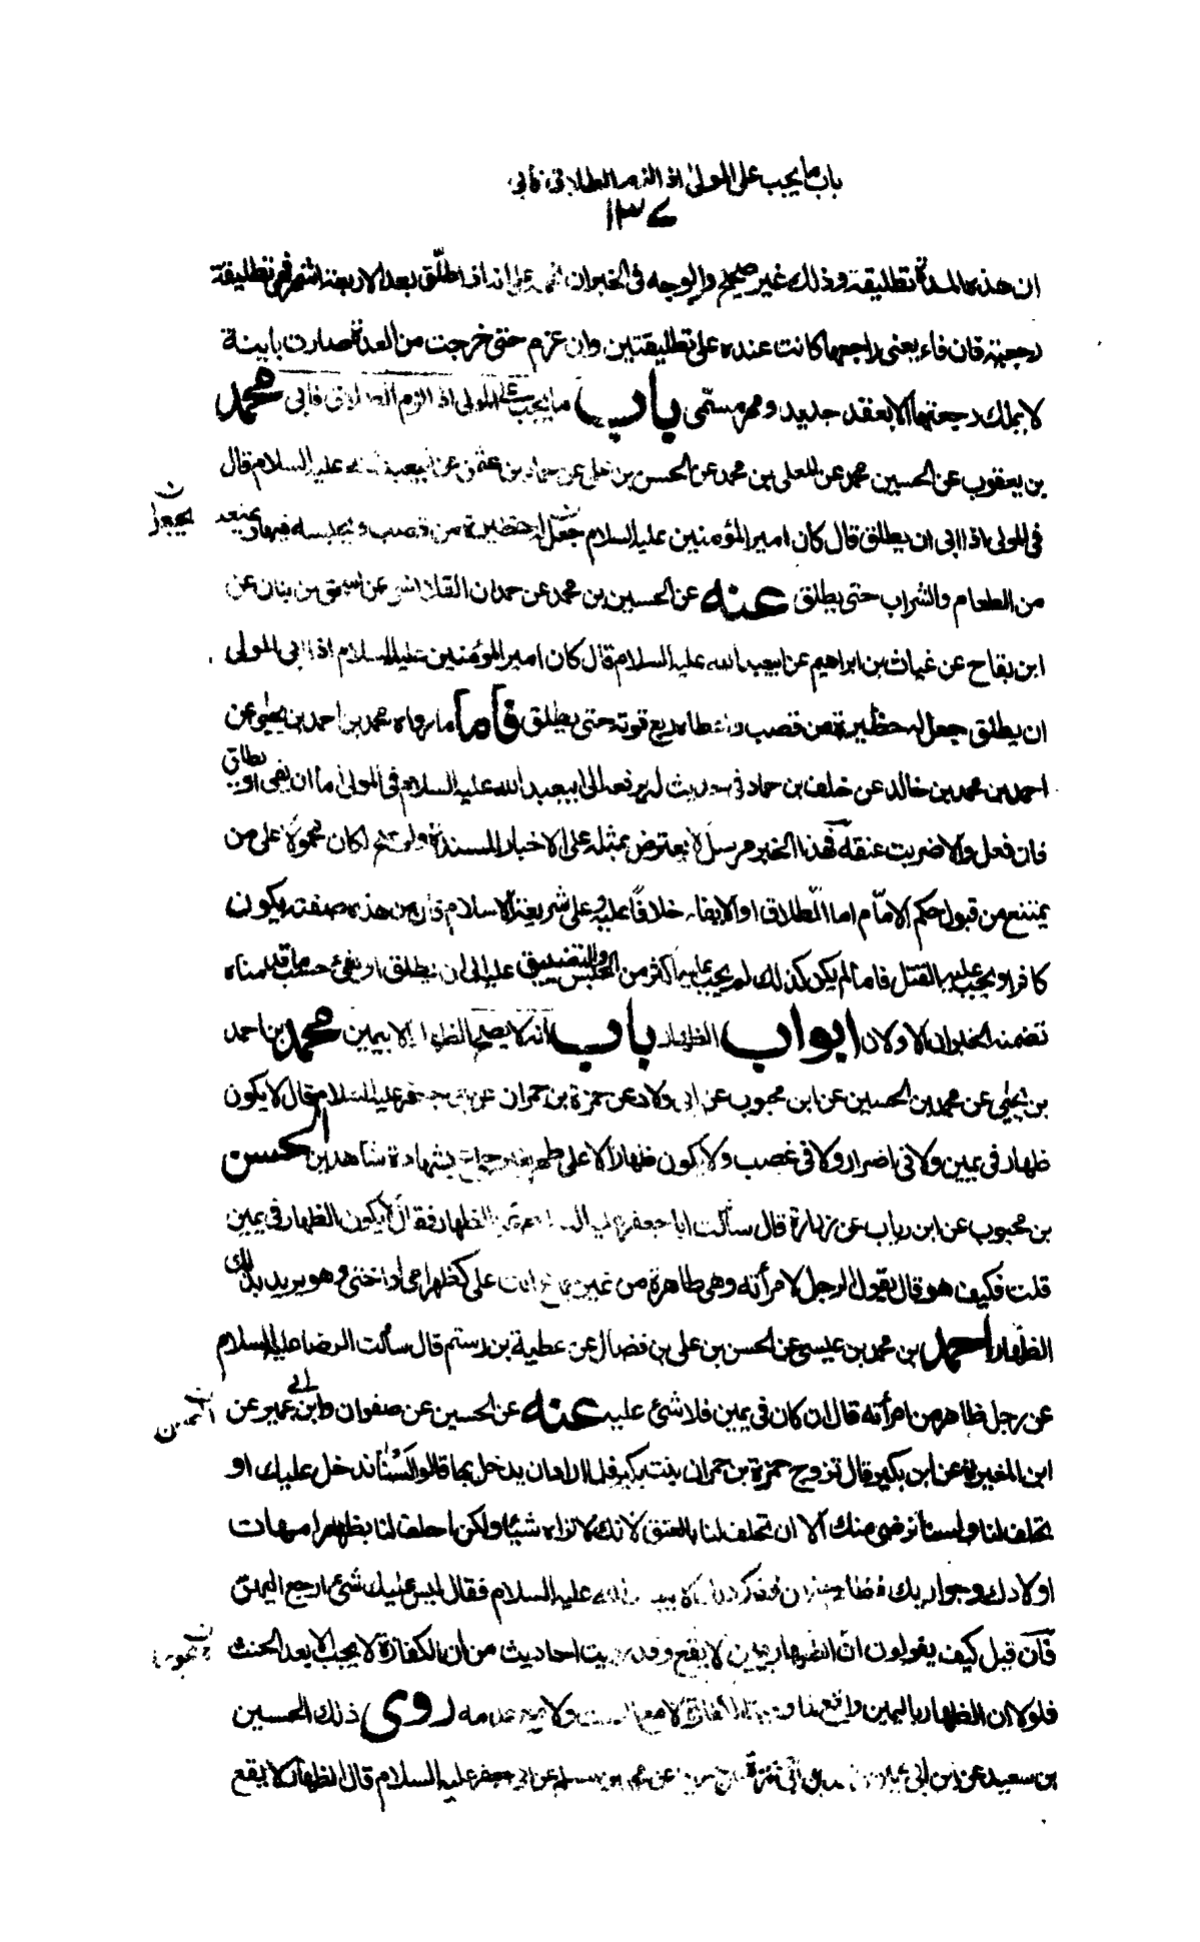 باب ما يجب على المولى اذا الزم الطلاق فابى
١٣٧
ان هذه المدة تطليقة وذلك غير صحيح والوجه فى الخبرين انه اذا طلق بعد الاربعة اشهر فهى تطليقة
رجعية فان فاء يعنى راجعها كانت عنده على تطليقتين وان عزم حتى خرجت من العدة صارت باينة
لا يملك رجعتها الا بعقد جديد ومهر مسمى باب ما يجب على المولى اذا الزم الطلاق فابى محمد
بن يعقوب عن الحسين بن محمد عن المعلى بن محمد عن الحسن بن على عن حماد بن عثمن عن ابيعبد الله عليه السلام قال
فى المولى اذا ابى ان يطلق قال كان امير المؤمنين عليه السلام جعل له حظيرة من قصب ويحبسه فيها ويمنعه
يجعل
ن
من الطعام والشراب حتى يطلق عنه عن الحسين بن محمد عن حمدان القلانسى عن اسحق بن بنان عن
ابن بقاح عن غياث بن ابراهيم عن ابيعبد الله عليه السلام قال كان امير المؤمنين عليه السلام اذا ابى المولى
ان يطلق جعل له حظيرة من قصب واعطاه ربع قوته حتى يطلق فاما ما رواه محمد بن احمد بن يحيى عن
احمد بن محمد بن خالد عن خلف بن حماد فى حديث له يرفعه الى ابيعبد الله عليه السلام فى المولى اما ان يفى او يطلق
فان فعل والا ضربت عنقه فهذا الخبر مرسل لا يعترض بمثله على الاخبار المسندة ولو لكان محمولا على من
يمتنع من قبول حكم الامام اما الطلاق او الايفاء خلافا عليه وعلى شريعة الاسلام فان من هذه صفته يكون
كافرا ويجب عليه القتل فاما لم يكن كذلك لم يجب عليه اكثر من الحبس والتضييق عليه الى ان يطلق او يفئ حسب ما قدمناه
تضمنه الخبران الاولان ابواب الظهار باب انه لا يصح الظهار الا بيمين محمد بن احمد
بن يحيى عن محمد بن الحسين عن ابن محبوب عن ابى ولاد عن حمزة بن حمران عن ابى جعفر عليه السلام قال لا يكون
ظهار فى يمين ولا فى اضرار ولا فى غضب ولا يكون ظهار الا على طهر بغير جماع بشهادة شاهدين الحسن
بن محبوب عن ابن رياب عن زرارة قال سألت ابا جعفر عليه السلام عن الظهار فقال لا يكون الظهار فى يمين
قلت فكيف هو قال يقول الرجل لامرأته وهى طاهرة من غير جماع انت على كظهر امى او اختى وهو يريد بذلك
الظهار احمد بن محمد بن عيسى عن الحسن بن على بن فضال عن عطية بن رستم قال سألت الرضا عليه السلام
عن رجل ظاهر من امرأته قال ان كان فى يمين فلا شئ عليه عنه عن الحسين عن صفوان وابن ابى عمير عن
ابن المغيرة عن ابن بكير قال تزوج حمزة بن حمران بنت بكير فلما اراد ان يدخل بها قالوا لسنا ندخل عليك او
تحلف لنا ولسنا نرضى منك الا ان تحلف لنا بالعتق لانك لا تراه شيئا ولكن احلف لنا بظهار امهات
اولادك وجواريك فظاهر منهن فذكر ذلك لابيعبد الله عليه السلام فقال ليس عليك شئ ارجع اليهن
فان قيل كيف يقولون ان الظهار بيمين لا يقع وقد رويت احاديث من ان الكفارة لا يجب الا بعد الحنث
فلولا ان الظهار باليمين واقع لما وجبت الكفارة لا مع الحنث ولا مع عدمه روى ذلك الحسين
بن سعيد عن ابن ابى عن محمد بن مسلم عن ابى جعفر عليه السلام قال الظهار لا يقع